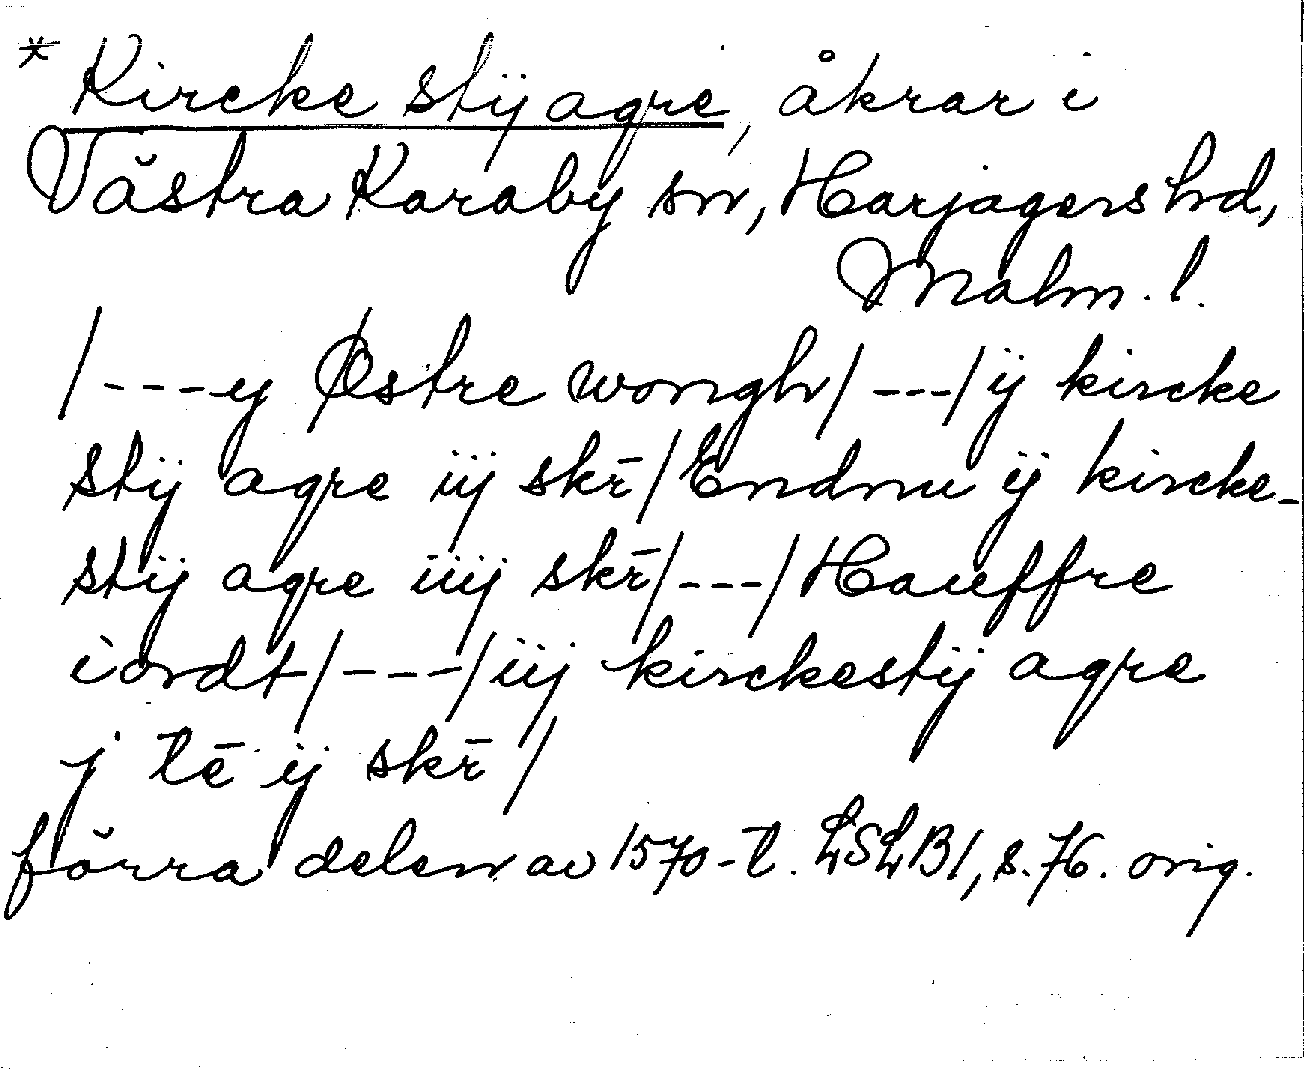 * Kircke stÿ agre, åkrar i
Västra Karaby sn, Harjagers hd,
Malm. l.
/---ij Østre wongh/---/ij kircke
stij agre iij skr̄/Endnu ij kircke-
stij agre iiij skr̄/---/Hauffre
iordt/---/iij kirckestij agre
j tē ij skr̄/
förra delen av 1570-t. LSLB1, s. 76. orig.